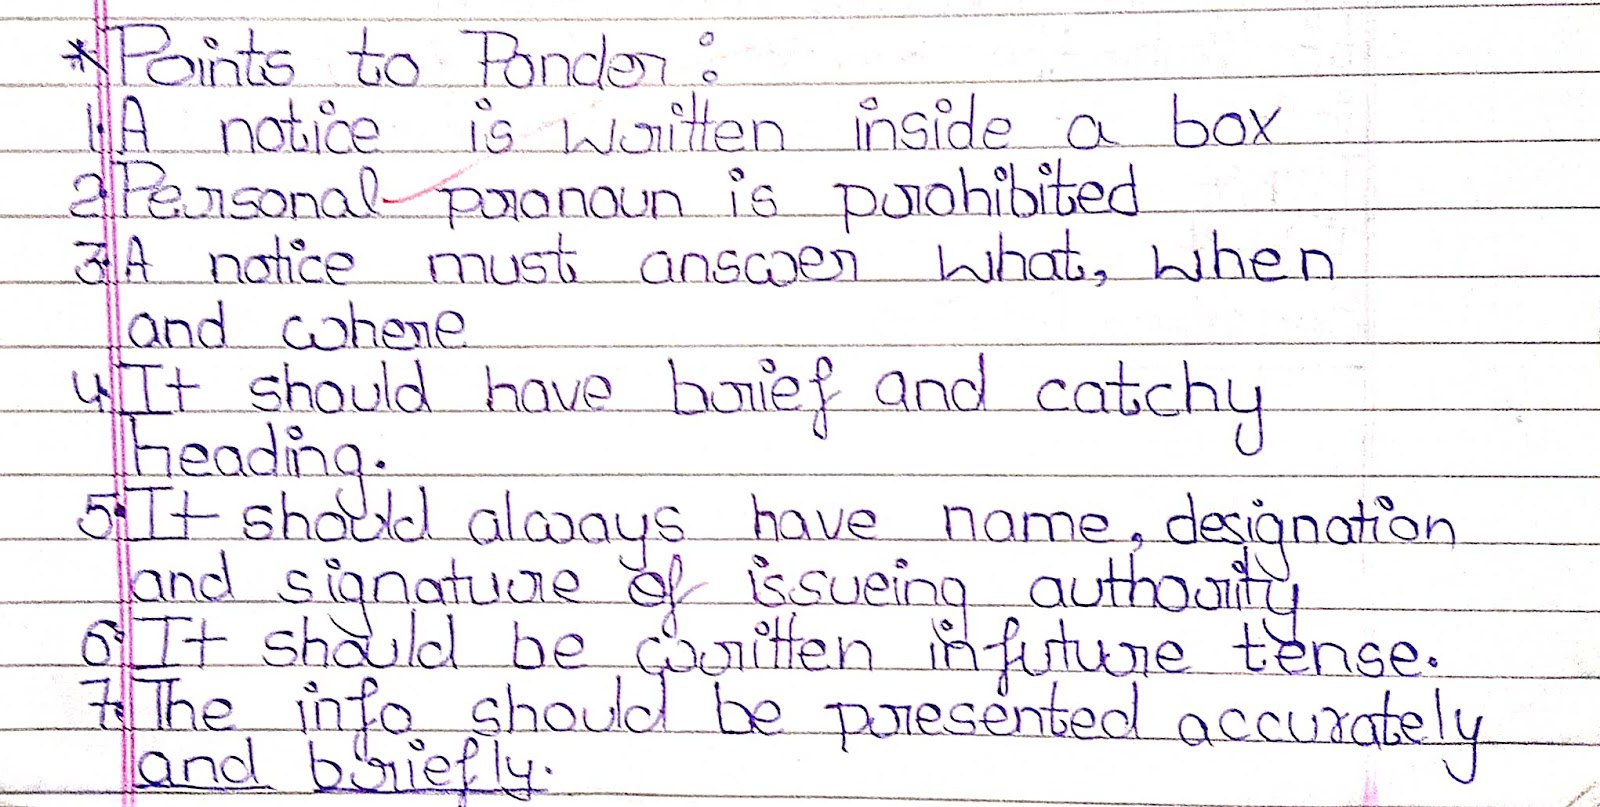 * Points to Ponder :
1. A notice is written inside a box
2. Personal pronoun is prohibited
3. A notice must answer what, when
and where
4. It should have brief and catchy
heading.
5. It should always have name, designation
and signature of issueing authority
6. It should be written in future tense.
7. The info should be presented accurately
and briefly.